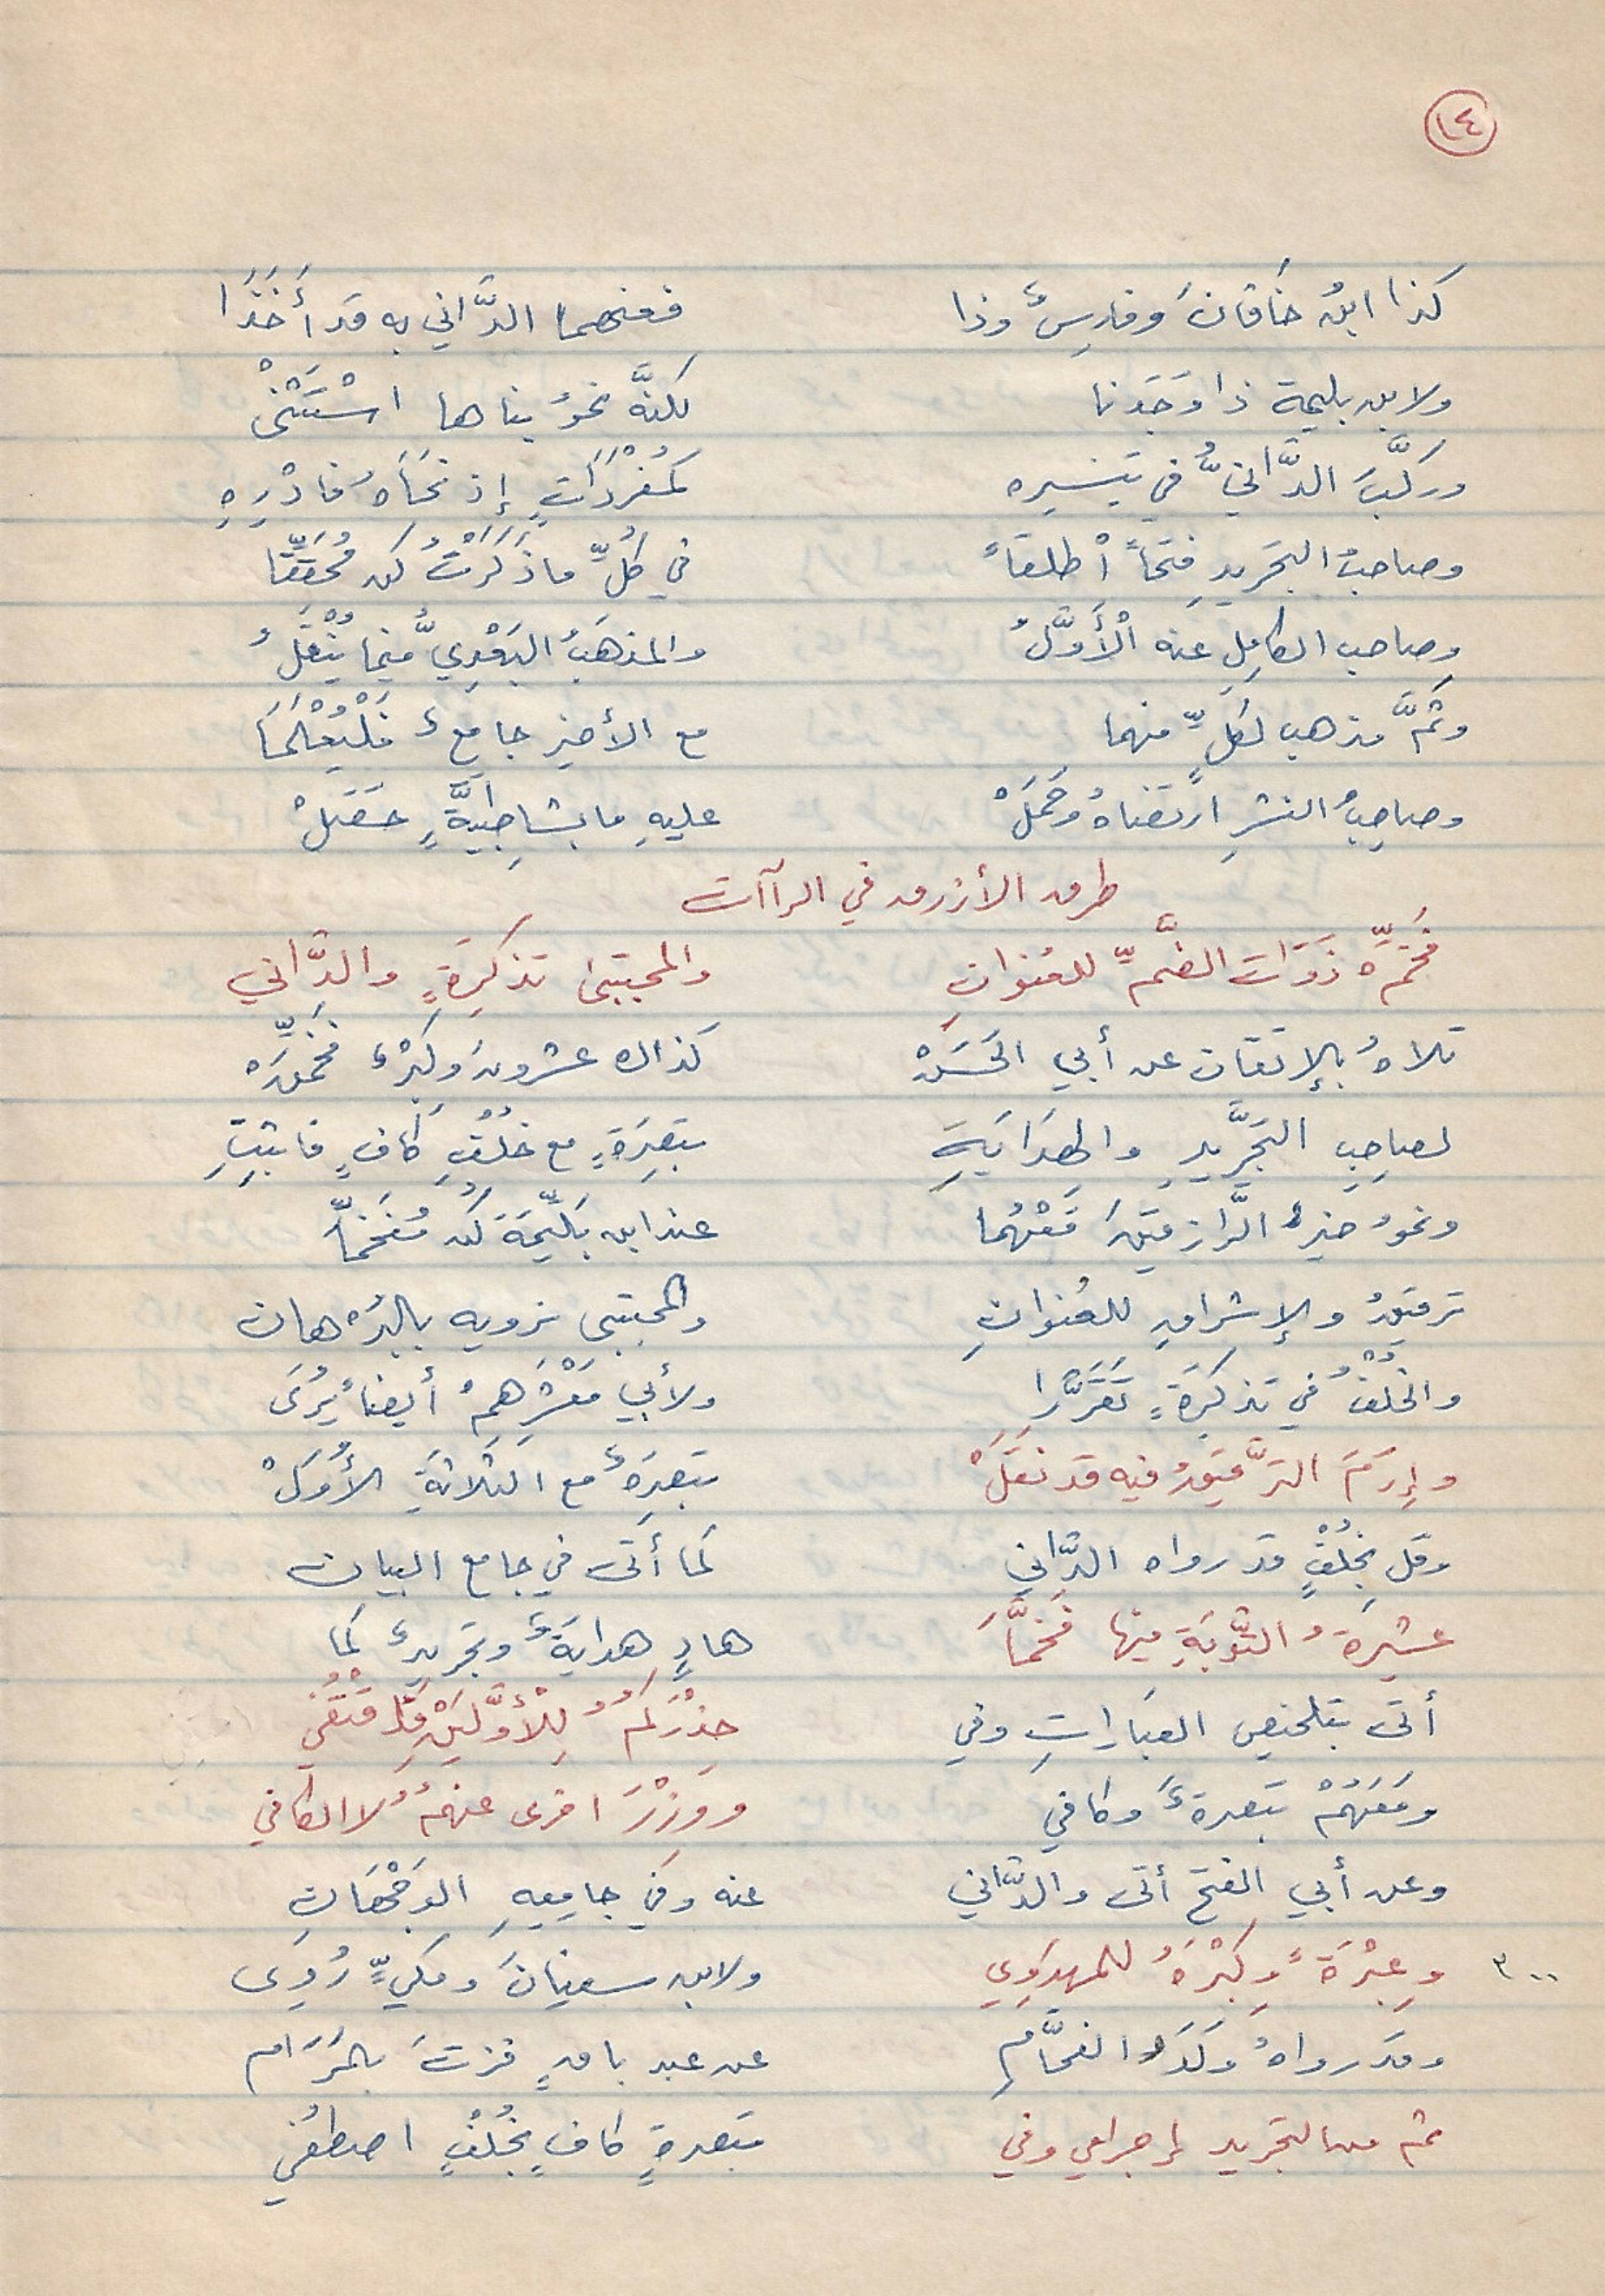 ١٤
كذا ابنُ خاقانَ وفارسٌ وذا فعنهما الدَّاني به قد أَخَذَا
ولابن بليمة ذا وَجَدنا لكنَّه نحوُ بناها اسْتَثْنَى
وركَّبَ الدَّانيُّ في تيسيره كمُفْرَدَاتٍ إذ نَحَاهُ فادْرِهِ
وصاحبُ التجريدِ فتحاً أطلقَا في كُلِّ ما ذَكَرْتُ كن مُحَقِّقَا
وصاحب الكامِلِ عنه الْأَوَّلُ والمذهَبُ البَعْدِيُّ فيما يُنْقَلُ
وثَمَّ مذهب لكلٍّ منهما مع الأخير جامعٌ فلْيُعْلَمَا
وصاحِبُ النشرِ ارتضاهُ وحَمَلْ عليهِ ما بشاطبيَّةٍ حَصَلْ
طرق الأزرق في الراآت
فَخِّمْ ذَوَات الضَّمِّ للعُنوانِ والمجتبى تذكِرَةٍ والدَّاني
تلاهُ بالإتقان عن أبي الحَسَنْ كذاك عشرونَ وكِبْرٌ فخِّمَنْ
لصاحِبِ التجْرِيدِ والهِدَايَةِ تبصِرَةٍ مع خُلْفِ كافٍ فاثبِتِ
ونحوُ خيرٌ الرَّازِقينَ مَعْهُما عند ابن بَلِّيمَةَ كُن مُفَخِّمَا
ترقيقُ والإشراقِ للعُنوانِ والمجتبى نرويه بالبُرْهان
والخُلْفُ في تذكِرَةٍ تَقَرَّرَا ولأبي مَعْشَرِهِمْ أيضاً يُرَى
وإِرَمَ التَّرقيقُ فيه قد نَقَلْ تبصِرَةٌ مع الثلاثةِ الأُوَلْ
وقل بخُلْفٍ قد رواه الدَّاني كما أتى في جامع البيان
عشيرَةُ التَّوبَةِ فيها فخَّمَا هادٍ هدايَةٌ وتجريدٌ كما
أتى بتلخيص العبَارَاتِ وفي حِذْرَكُمُ لِلْأَوَّلَيْنِ قد قُفي
ومَعَهُمْ تبصرةٌ وكافي ووِزْرَ اخرى عنهمُ لا الكافي
وعن أبي الفتح أتى والدَّاني عنه وفي جامِعِهِ الوَجْهَانِ
٣٠٠ وعِبْرَةً وكِبْرَهُ للمهدَوِي ولابن سفيانَ ومكيٍّ رُوِى
وقد رواهُ وَلَدُ الفحَّامِ عن عبد باقٍ فزتَ بالمَرَام
ثم من التجريد إجرامي وفي تبصرةٍ كافٍ بخُلْفٍ اصطُفي